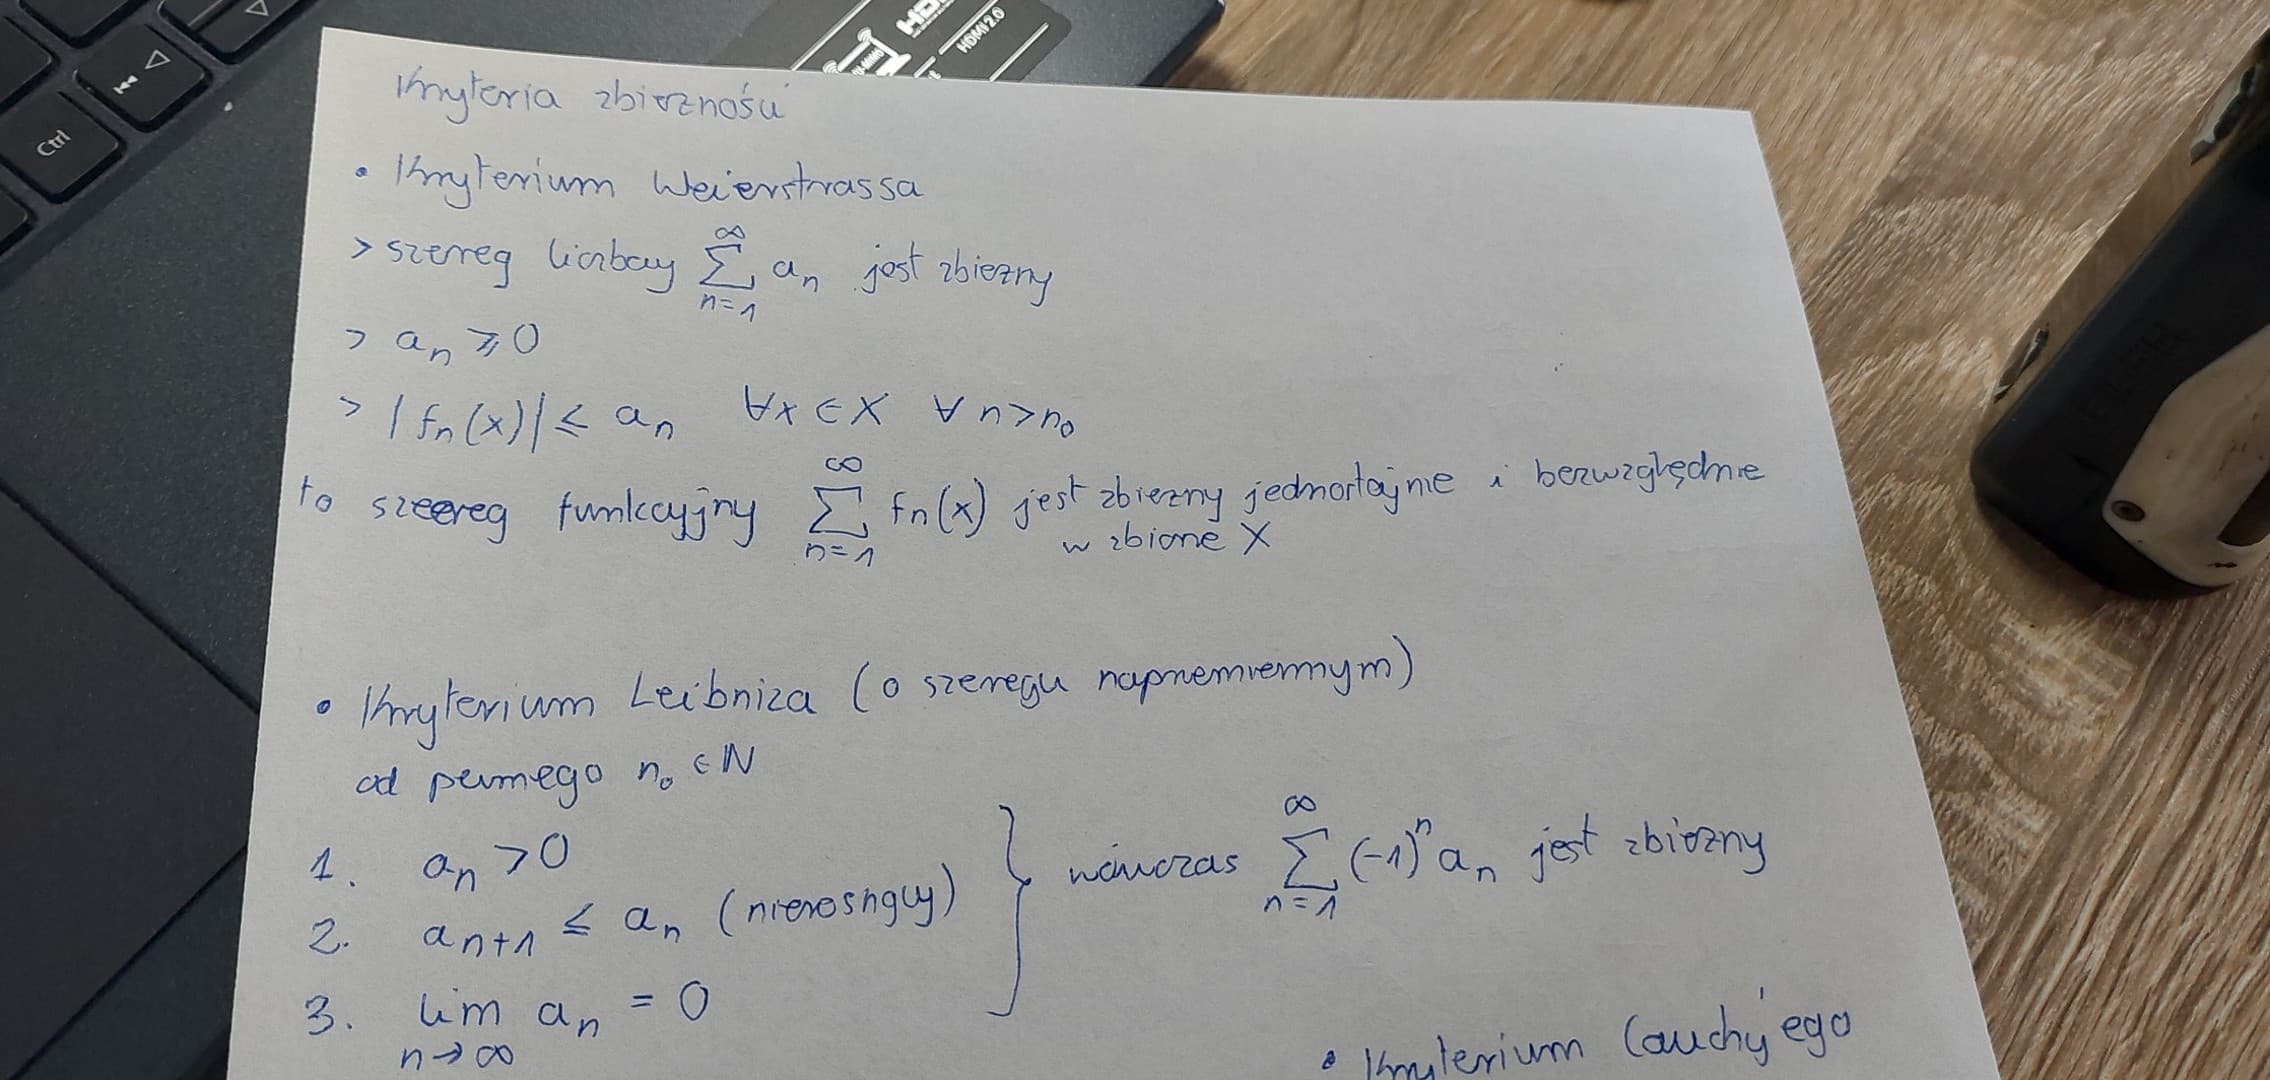 Ctrl
HDMI 2.0
Kryteria zbieżności
• Kryterium Weierstrassa
> szereg liczbowy ∑_{n=1}^{∞} a_n jest zbieżny
> a_n ⩾ 0
> |f_n(x)| ⩽ a_n ∀x ∈ X ∀ n > n_0
to szeereg funkcyjny ∑_{n=1}^{∞} f_n(x) jest zbieżny jednostajnie i bezwzględnie
w zbiorze X
• Kryterium Leibniza (o szeregu naprzemiennym)
od pewnego n_0 ∈ ℕ
1. a_n > 0
2. a_{n+1} ⩽ a_n (nierosnący) } wówczas ∑_{n=1}^{∞} (-1)^n a_n jest zbieżny
3. lim_{n→∞} a_n = 0
• Kryterium Cauchy'ego